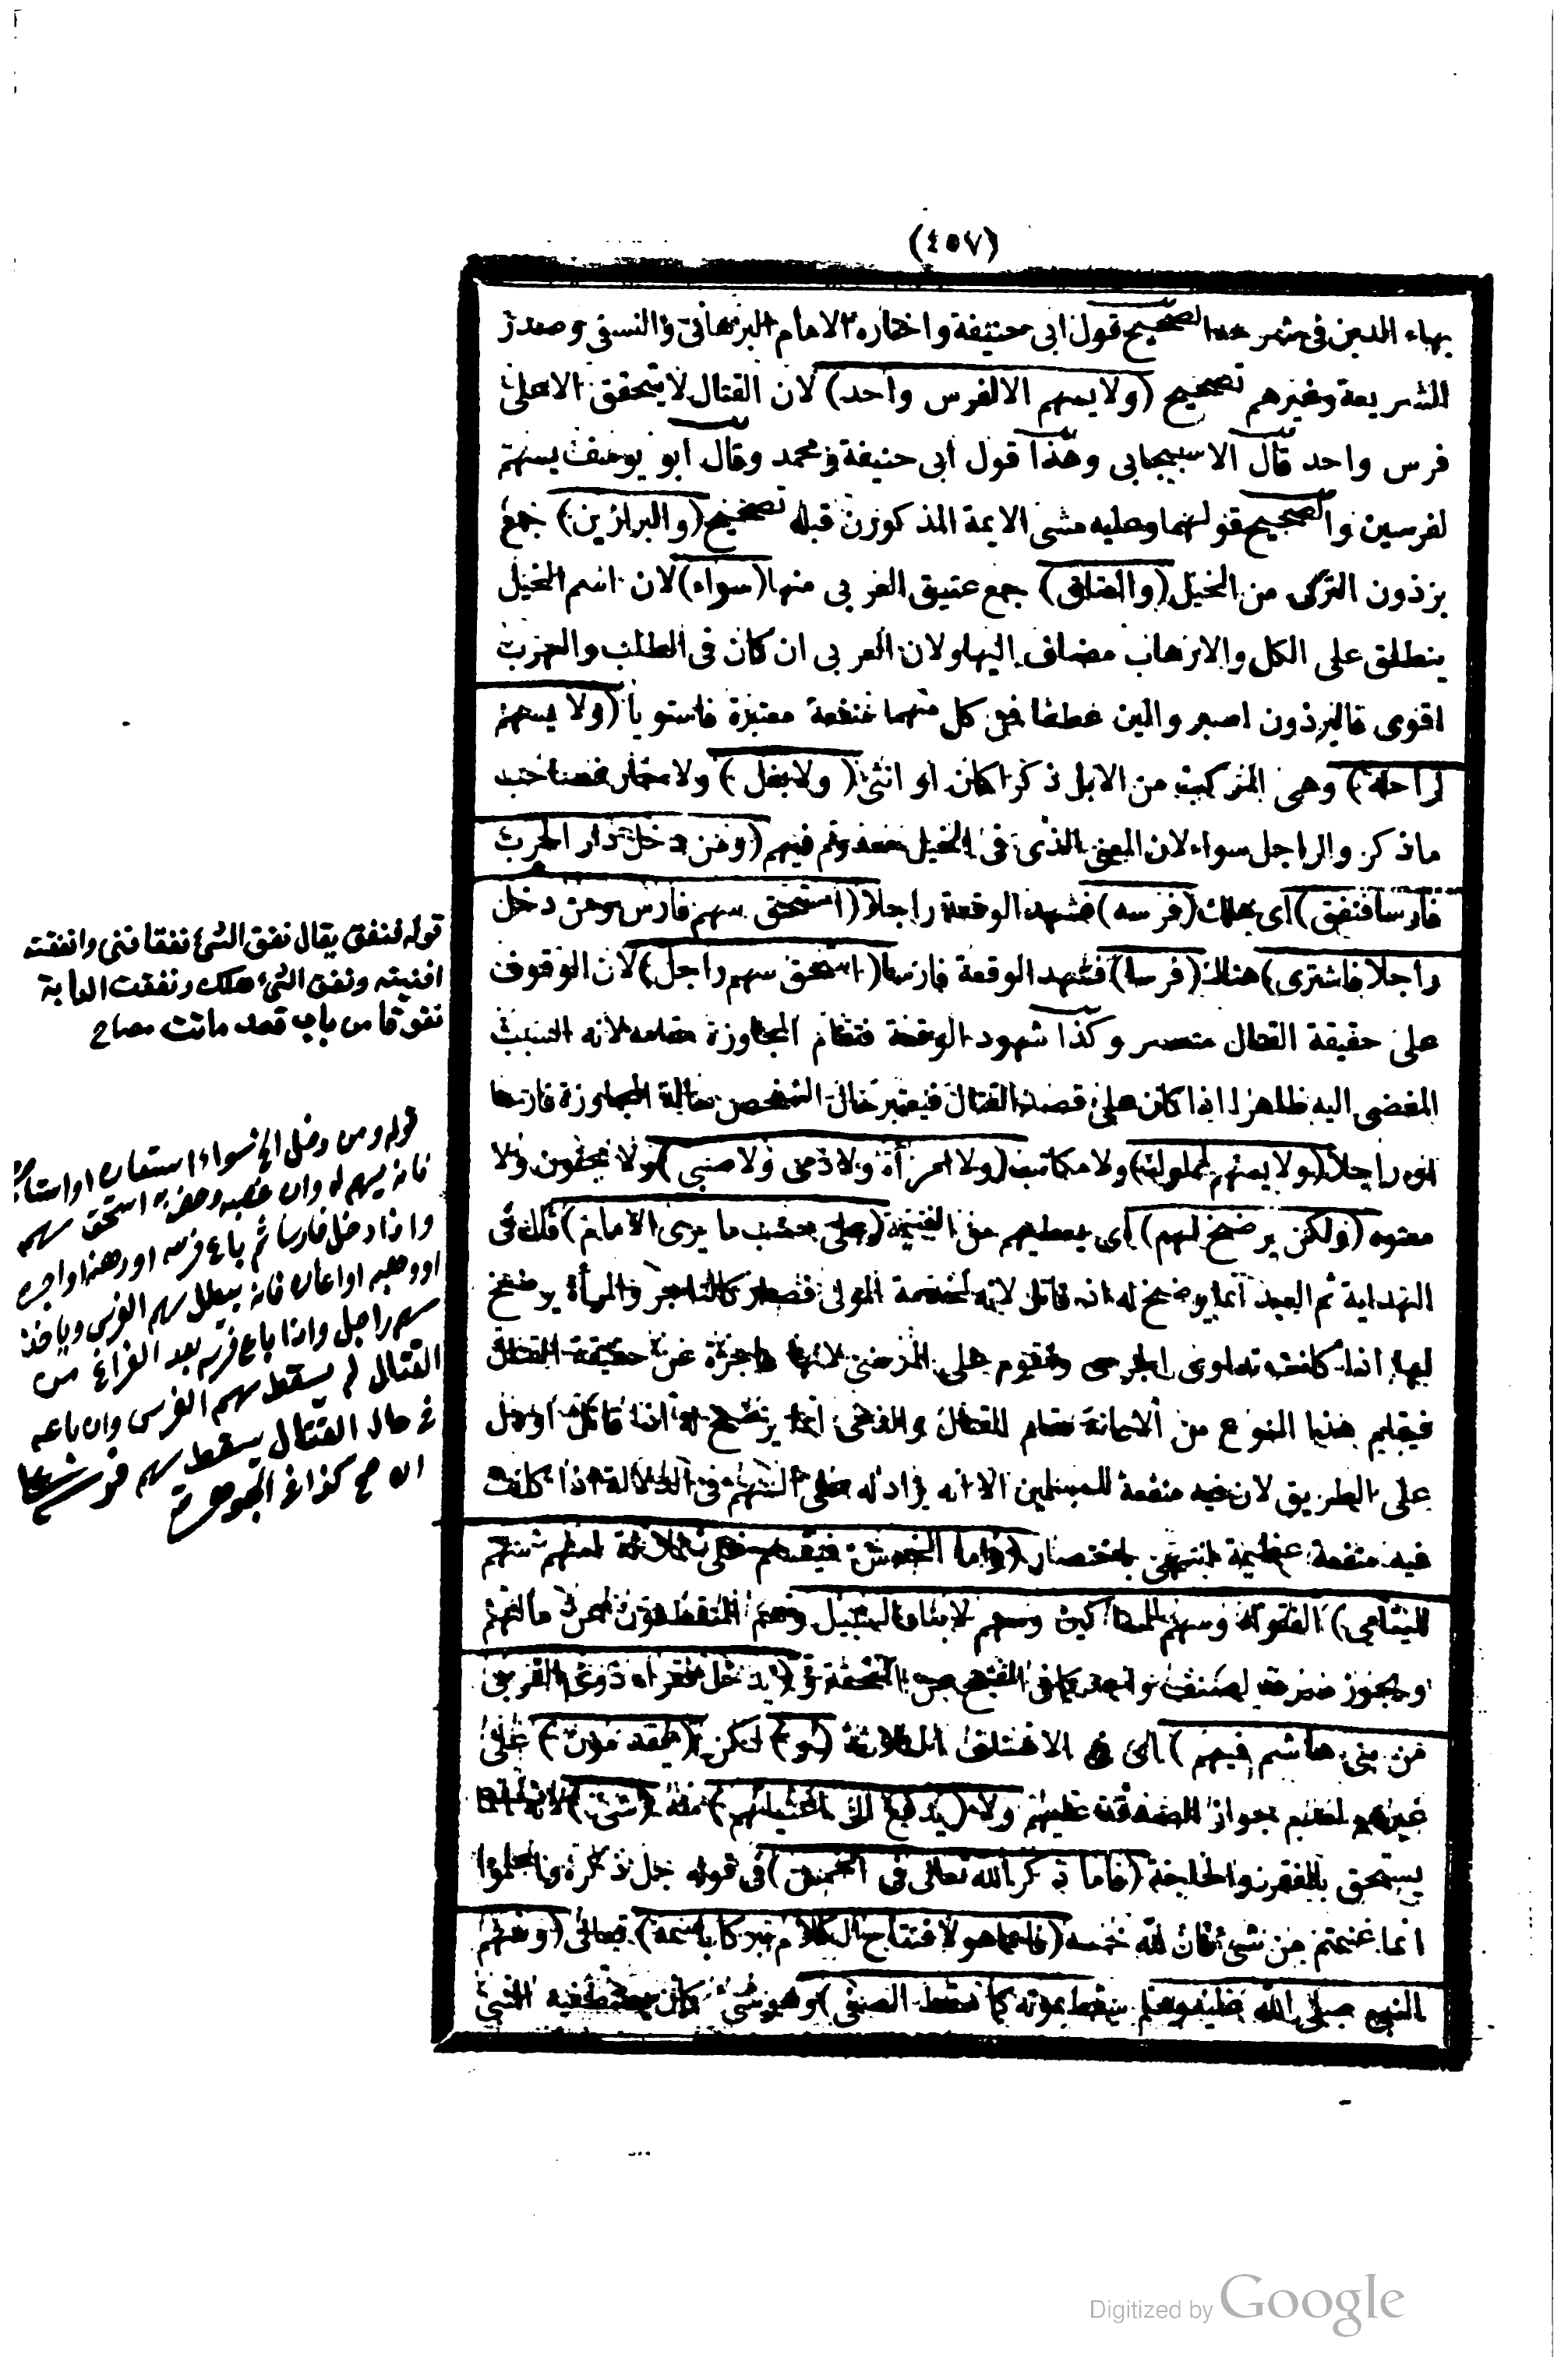 (٤٥٧)
بهاء الدين فى شرحه الصحيح قول ابى حنيفة واختاره الامام البرهانى والنسفى وصدر
الشريعة وغيرهم تصحيح (ولا يسهم الا لفرس واحد) لان القتال لا يتحقق الا على
فرس واحد قال الاسبيجابى وهذا قول ابى حنيفة ومحمد وقال ابو يوسف يسهم
لفرسين والصحيح قولهما وعليه مشى الايمة المذكورون قبله تصحيح (والبراذين) جمع
برذون التركى من الخيل (والعتاق) جمع عتيق العربى منها (سواء) لان اسم الخيل
ينطلق على الكل والارهاب مضاف اليها ولان العربى ان كان فى الطلب والهرب
اقوى فالبرذون اصبر والين عطفا ففى كل منهما منفعة معتبرة فاستويا (ولا يسهم
لراحلة) وهى المركب من الابل ذكرا كان او انثى (ولا بغل) ولا حمار فصاحب
ماذكر والراجل سواء لان المعنى الذى فى الخيل معدوم فيهم (ومن دخل دار الحرب
فارسا فنفق) اى هلك (فرسه) فشهد الوقعة راجلا (استحق سهم فارس ومن دخل
راجلا فاشترى) هناك (فرسا) فشهد الوقعة فارسا (استحق سهم راجل) لان الوقوف
على حقيقة القتال متعسر وكذا شهود الوقعة فتقام المجاوزة مقامه لانه السبب
المفضى اليه ظاهرا اذا كان على قصد القتال فيعتبر حال الشخص بحالة المجاوزة فارسا
او راجلا (ولا يسهم لمملوك) ولا مكاتب (ولا امرأة ولا ذمى ولا صبى) ولا مجنون ولا
معتوه (ولكن يرضخ لهم) اى يعطيهم من الغنيمة (على حسب ما يرى الامام) قال فى
الهداية ثم العبد انما يرضخ له اذا قاتل لانه لخدمة المولى فصار كالتاجر والمرأة يرضخ
لها اذا كانت تداوى الجرحى وتقوم على المرضى لانها عاجزة عن حقيقة القتال
فيقام هذا النوع من الاعانة مقام القتال والذمى انما يرضخ له اذا قاتل او دل
على الطريق لان فيه منفعة للمسلمين الا انه يزاد له على السهم فى الدلالة اذا كانت
فيه منفعة عظيمة انتهى باختصار (واما الخمس فيقسم على ثلاثة اسهم سهم
لليتامى) الفقراء وسهم للمساكين وسهم لابناء السبيل وهم المنقطعون عن مالهم
ويجوز صرفه لصنف واحد كما فى الفتح عن التحفة و (يدخل فقراء ذوى القربى
من بنى هاشم فيهم) اى فى الاصناف الثلاثة (و) لكن (يقدمون) على
غيرهم لعدم جواز الصدقة عليهم ولا (يدفع الى اغنيائهم) منه (شئ) لانه انما
يستحق بالفقر والحاجة (فاما ذكر الله تعالى فى الخمس) فى قوله جل ذكره واعلموا
انما غنمتم من شئ فان لله خمسه (فانما هو لافتتاح الكلام تبركا باسمه) تعالى (وسهم
النبى صلى الله عليه وسلم سقط بموته كما سقط الصفى) وهو شئ كان يصطفيه النبى
قوله فنفق يقال نفق الشئ نفقا فنى وانفقته
افنيته ونفق الشئ هلك ونفقت الدابة
نفوقا من باب قعد ماتت مصباح
قوله ومن دخل الخ سواء استعاره او استأجره
فانه يسهم له وان غصبه وحضر به استحق سهم
واذا دخل فارسا ثم باع فرسه او رهنه او اجره
او وهبه او اعاره فانه يبطل سهم الفرس وياخذ
سهم راجل واذا باع فرسه بعد الفراغ من
القتال لم يسقط سهم الفرس وان باعه
فى حال القتال يسقط سهم فرسه
اﻫ كذا فى الجوهرة
Digitized by Google